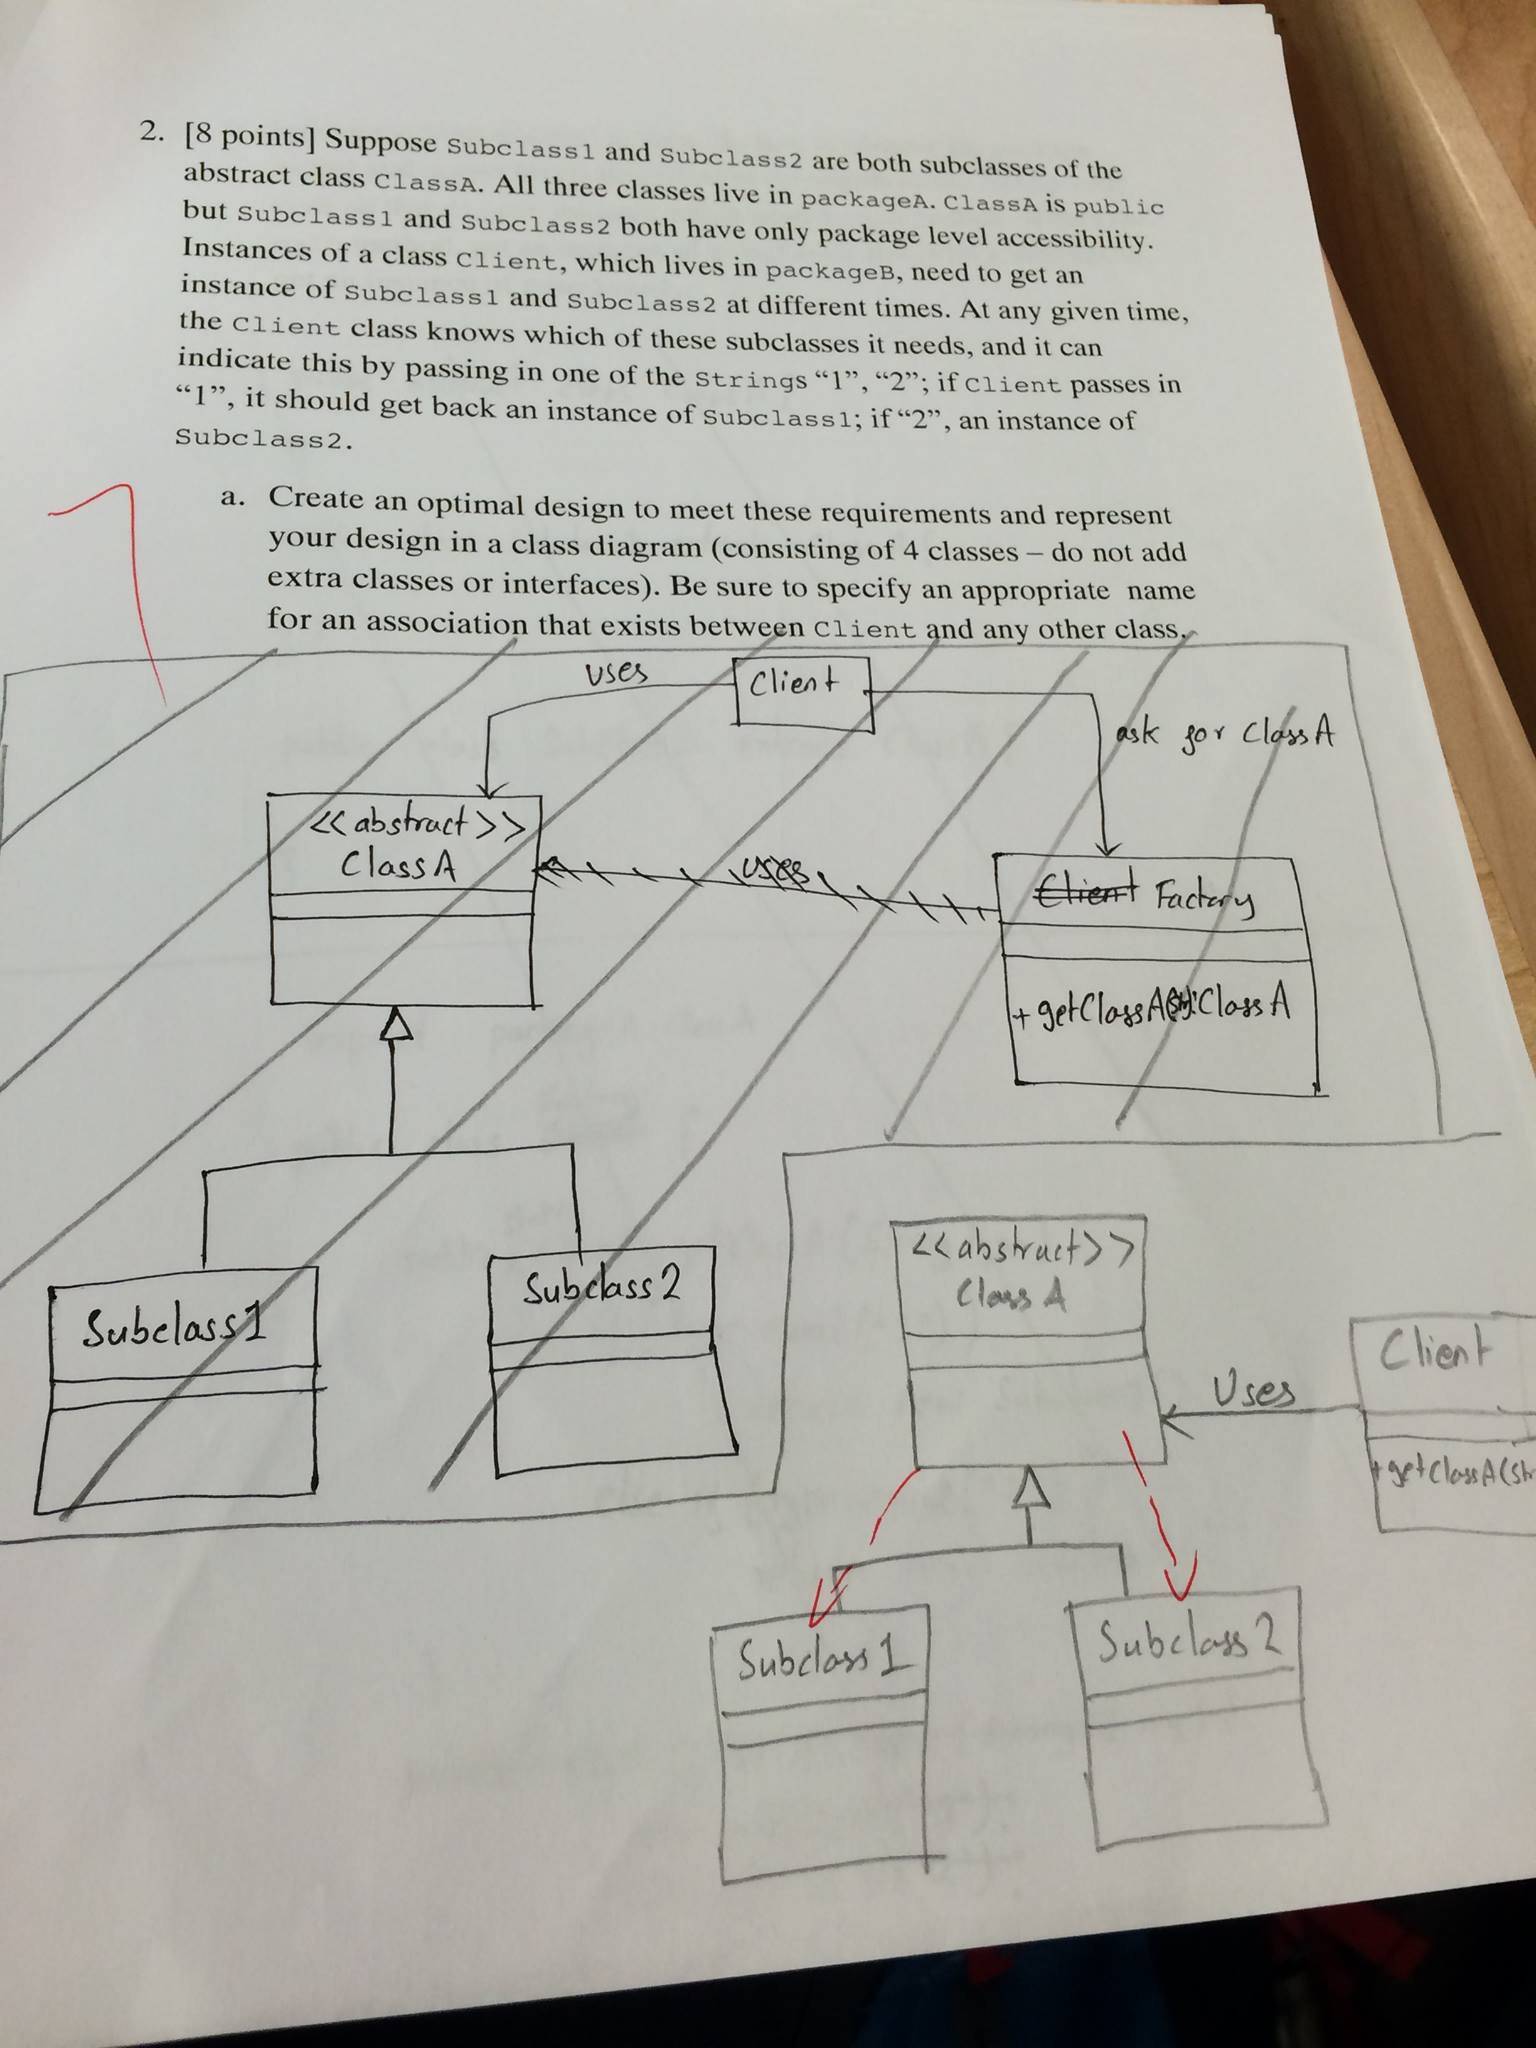 2. [8 points] Suppose Subclass1 and Subclass2 are both subclasses of the
abstract class ClassA. All three classes live in packageA. ClassA is public
but Subclass1 and Subclass2 both have only package level accessibility.
Instances of a class Client, which lives in packageB, need to get an
instance of Subclass1 and Subclass2 at different times. At any given time,
the Client class knows which of these subclasses it needs, and it can
indicate this by passing in one of the Strings “1”, “2”; if Client passes in
“1”, it should get back an instance of Subclass1; if “2”, an instance of
Subclass2.
a. Create an optimal design to meet these requirements and represent
your design in a class diagram (consisting of 4 classes – do not add
extra classes or interfaces). Be sure to specify an appropriate name
for an association that exists between Client and any other class.
uses
Client
ask for ClassA
<<abstract>>
ClassA
uses
Client Factory
+ getClassA :ClassA
Subclass1
Subclass2
<<abstract>>
Class A
Uses
Client
+getClassA(Str
Subclass 1
Subclass 2